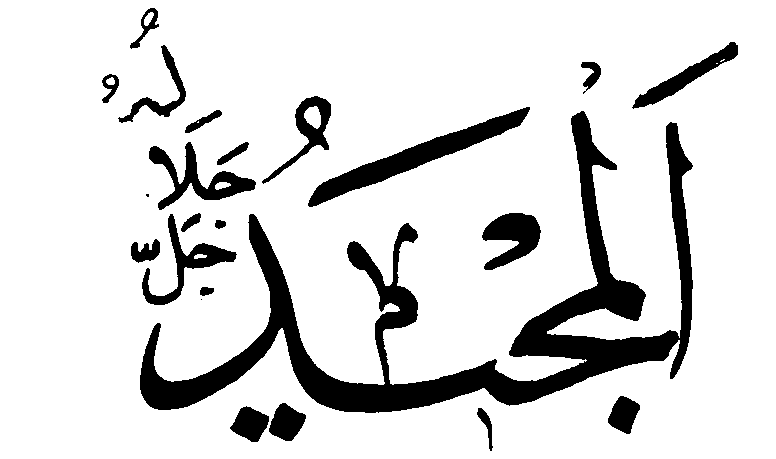 اَلْمَجِيدُ
جَلَّ جَلَالُهُ